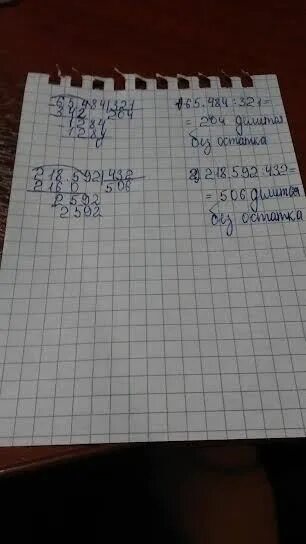 65.484|321
642    204
1284
1284
0
1) 65.484:321=
= 204 делится
без остатка
218.592|432
2160    506
2592
2592
2) 218.592:432=
= 506 делится
без остатка